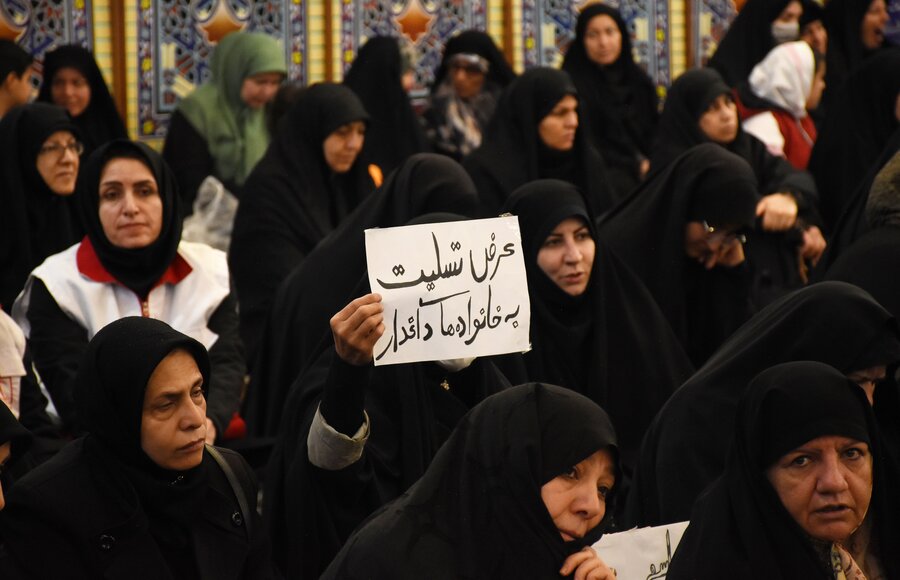 عرض تسلیت
به خانواده‌های داغدار